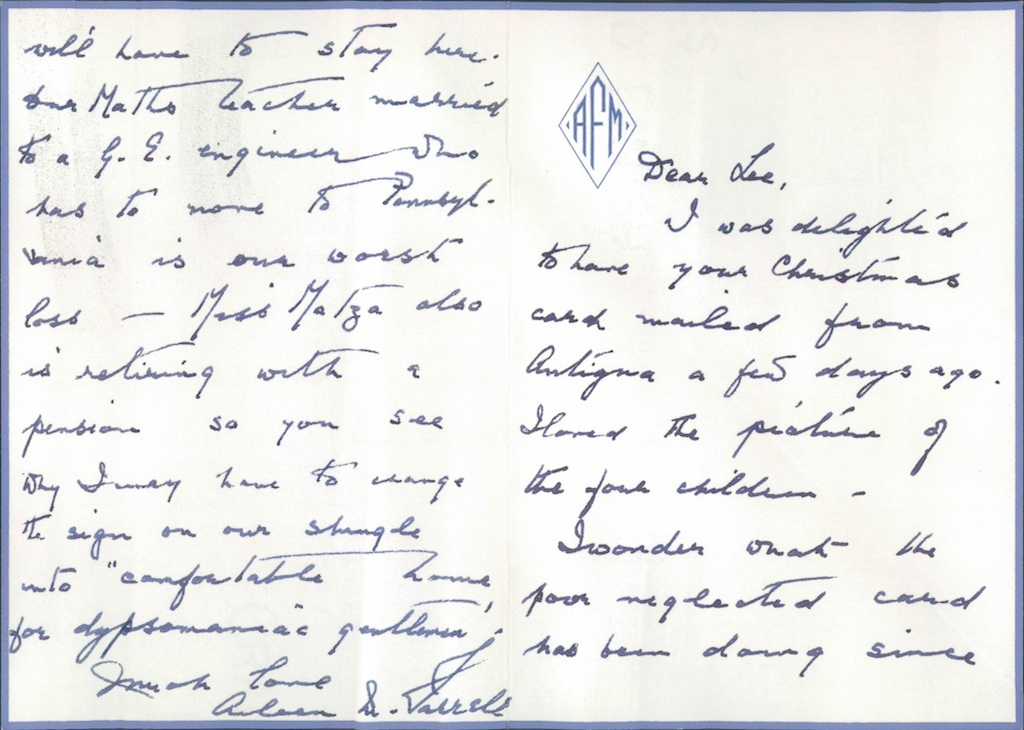 AFM
Dear Lee,
I was delighted
to have your Christmas
card mailed from
Antigua a few days ago.
I loved the picture of
the four children –
I wonder what the
poor neglected card
has been doing since
will have to stay here.
Our Maths teacher married
to a G. E. engineer who
has to move to Pennsyl-
vania is our worst
loss — Miss Matza also
is retiring with a
pension so you see
why I may have to change
the sign on our shingle
into "comfortable home
for dypsomaniac gentlemen"
Much love
Aileen D.